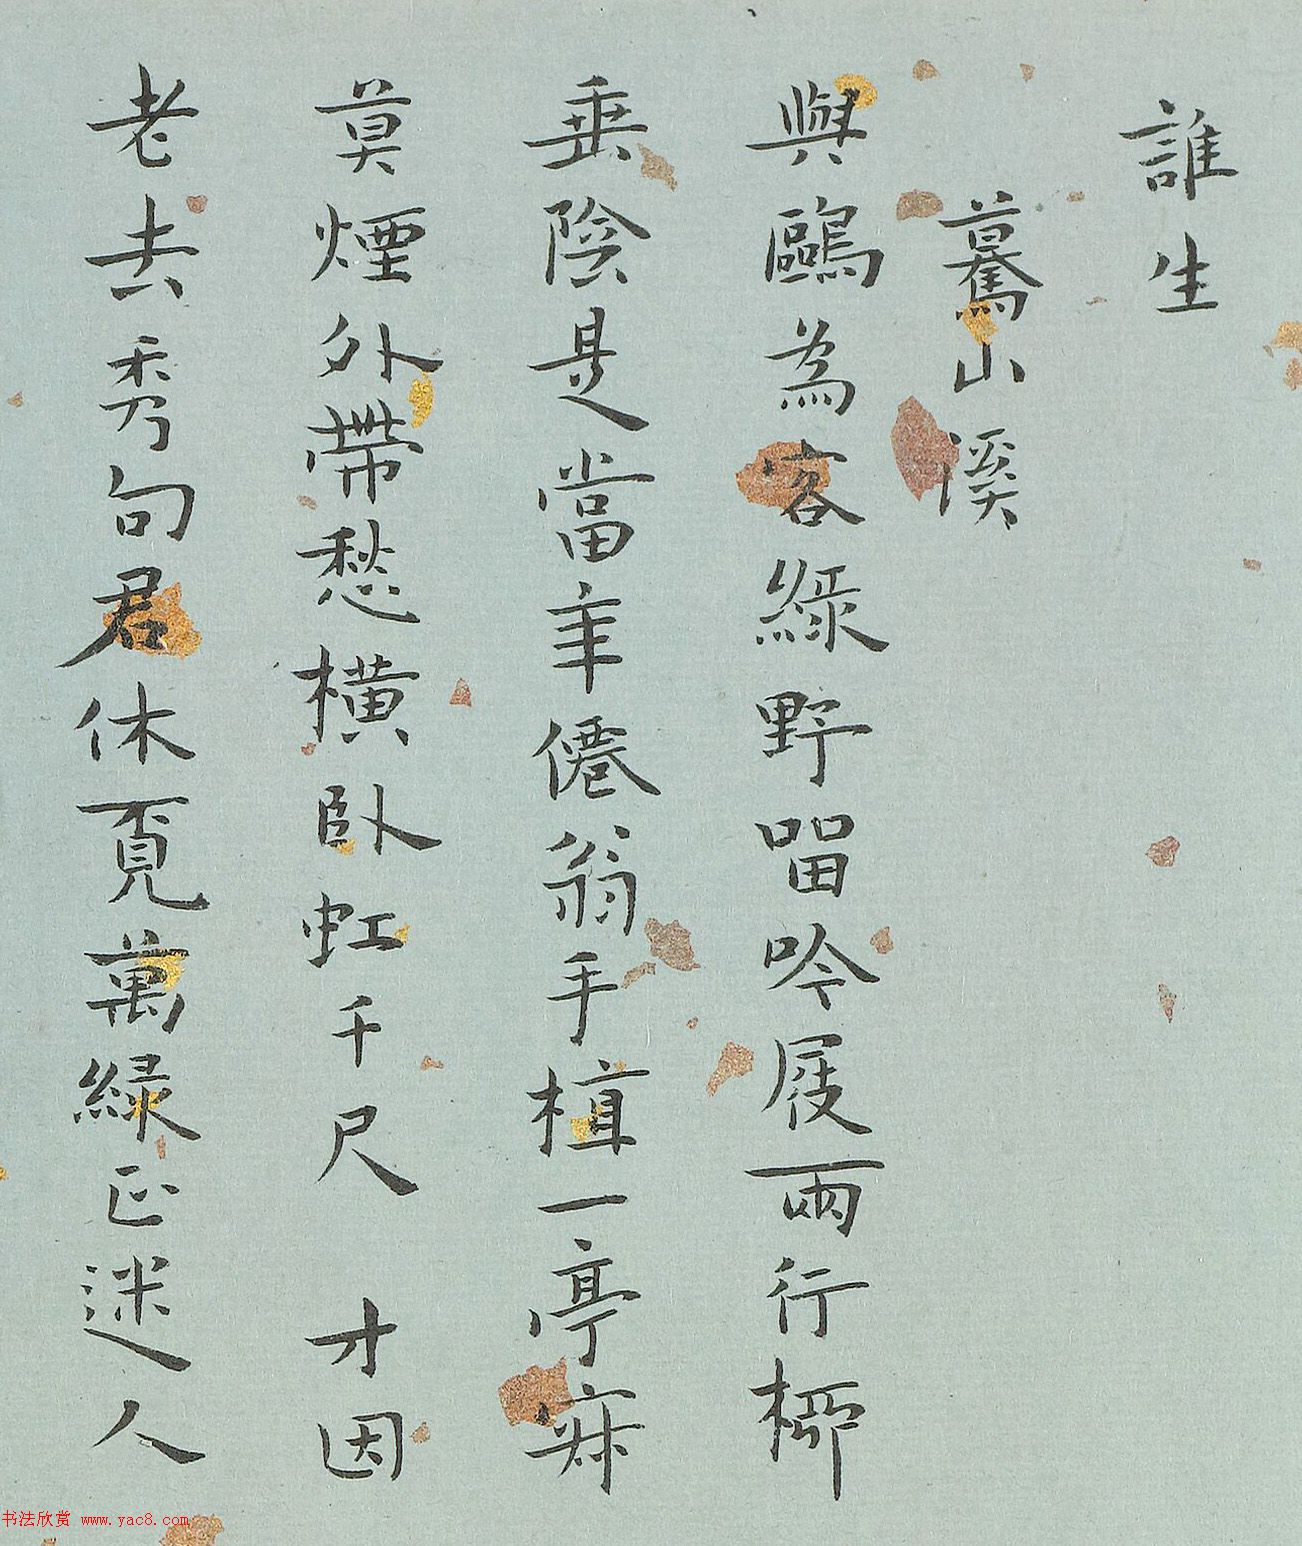 誰生
驀山溪
與鷗為客綠野留吟屐兩行柳
垂陰是當年僊翁手植一亭寂
莫煙外帶愁橫臥虹千尺 才因
老去秀句君休覔萬綠正迷人
书法欣赏 www.yac8.com